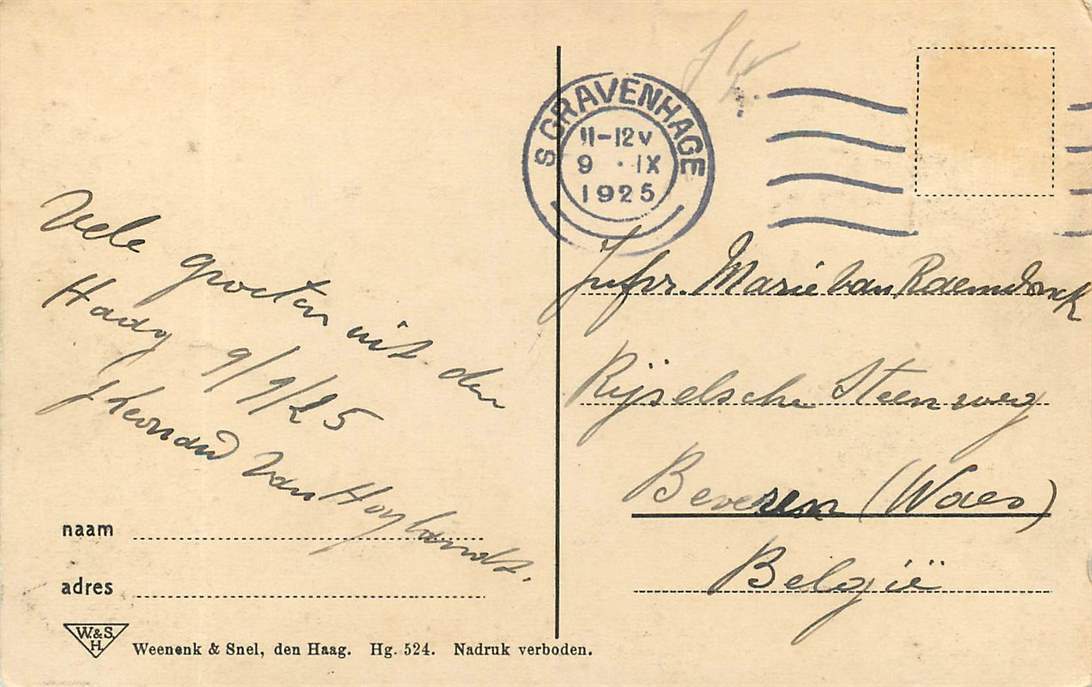 Vele groeten uit den
Haag 9/9/25
J Leonard Van Hoylandt.
naam
adres
W.&S.
H.
Weenenk & Snel, den Haag. Hg. 524. Nadruk verboden.
S GRAVENHAGE
11-12V
9 · IX
1925
Jufvr. Marie Van Raemdonck
Rijselsche Steenweg
Beveren (Waes)
België